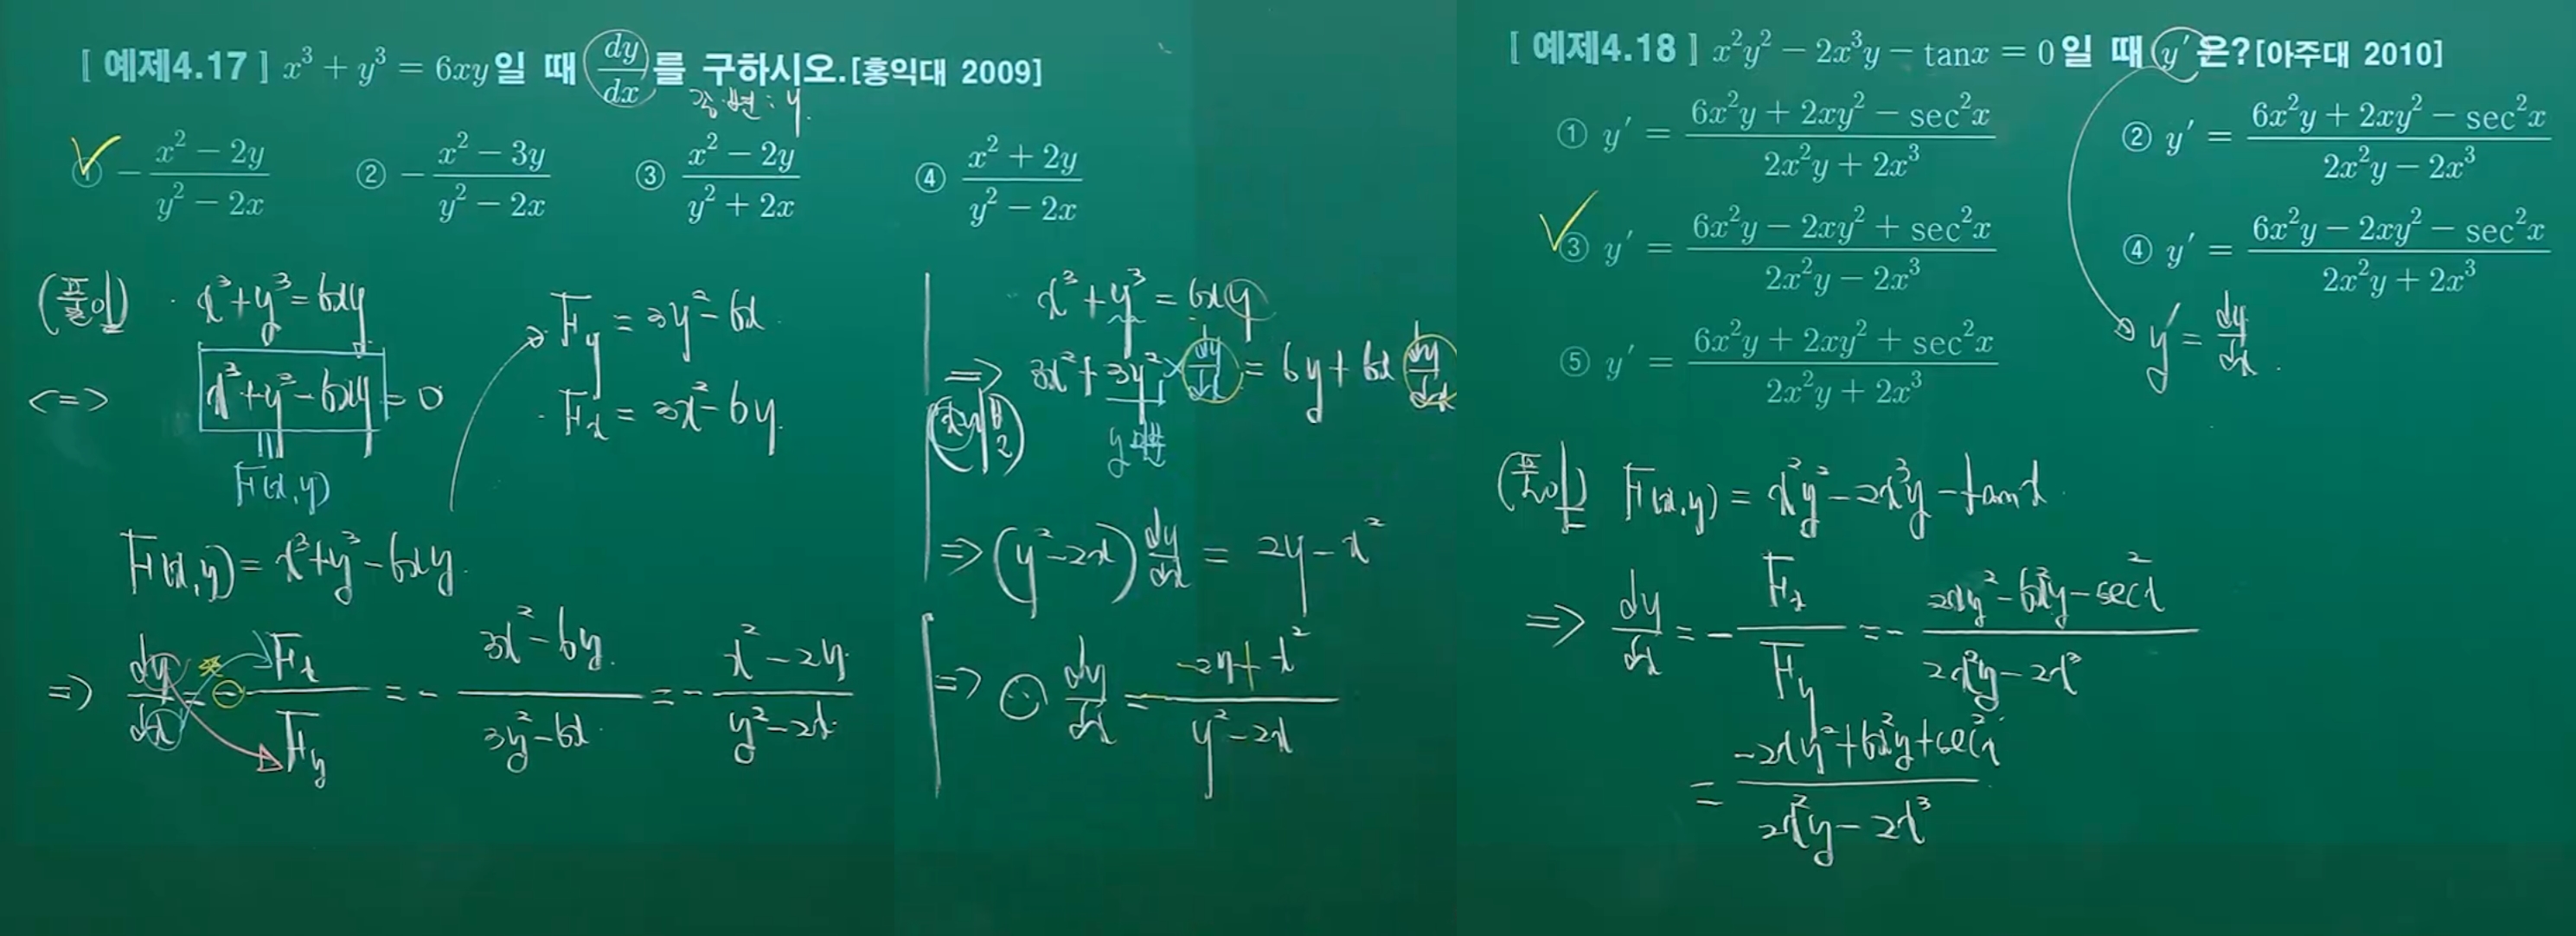 [ 예제4.17 ] x³ + y³ = 6xy일 때 dy/dx를 구하시오.[홍익대 2009]
종·변 : y
① -(x² - 2y)/(y² - 2x) ② -(x² - 3y)/(y² - 2x) ③ (x² - 2y)/(y² + 2x) ④ (x² + 2y)/(y² - 2x)
(풀이) · x³+y³=6xy
<=> x³+y³-6xy = 0
F(x,y)
F(x,y) = x³+y³-6xy.
F_y = 3y²-6x.
· F_x = 3x²-6y.
=> dy/dx = - F_x/F_y = - (3x²-6y)/(3y²-6x) = - (x²-2y)/(y²-2x)
x³+y³ = 6xy
=> 3x²+3y² × dy/dx = 6y+6x dy/dx
=> (y²-2x) dy/dx = 2y-x²
=> ∴ dy/dx = - (-2y+x²)/(y²-2x)
[ 예제4.18 ] x²y² - 2x³y - tanx = 0일 때 y′은?[아주대 2010]
① y′ = (6x²y + 2xy² - sec²x)/(2x²y + 2x³) ② y′ = (6x²y + 2xy² - sec²x)/(2x²y - 2x³)
③ y′ = (6x²y - 2xy² + sec²x)/(2x²y - 2x³) ④ y′ = (6x²y - 2xy² - sec²x)/(2x²y + 2x³)
⑤ y′ = (6x²y + 2xy² + sec²x)/(2x²y + 2x³)
y′ = dy/dx.
(풀이) F(x,y) = x²y²-2x³y-tanx.
=> dy/dx = - F_x/F_y = - (2xy²-6x²y-sec²x)/(2x²y-2x³)
= (-2xy²+6x²y+sec²x)/(2x²y-2x³)